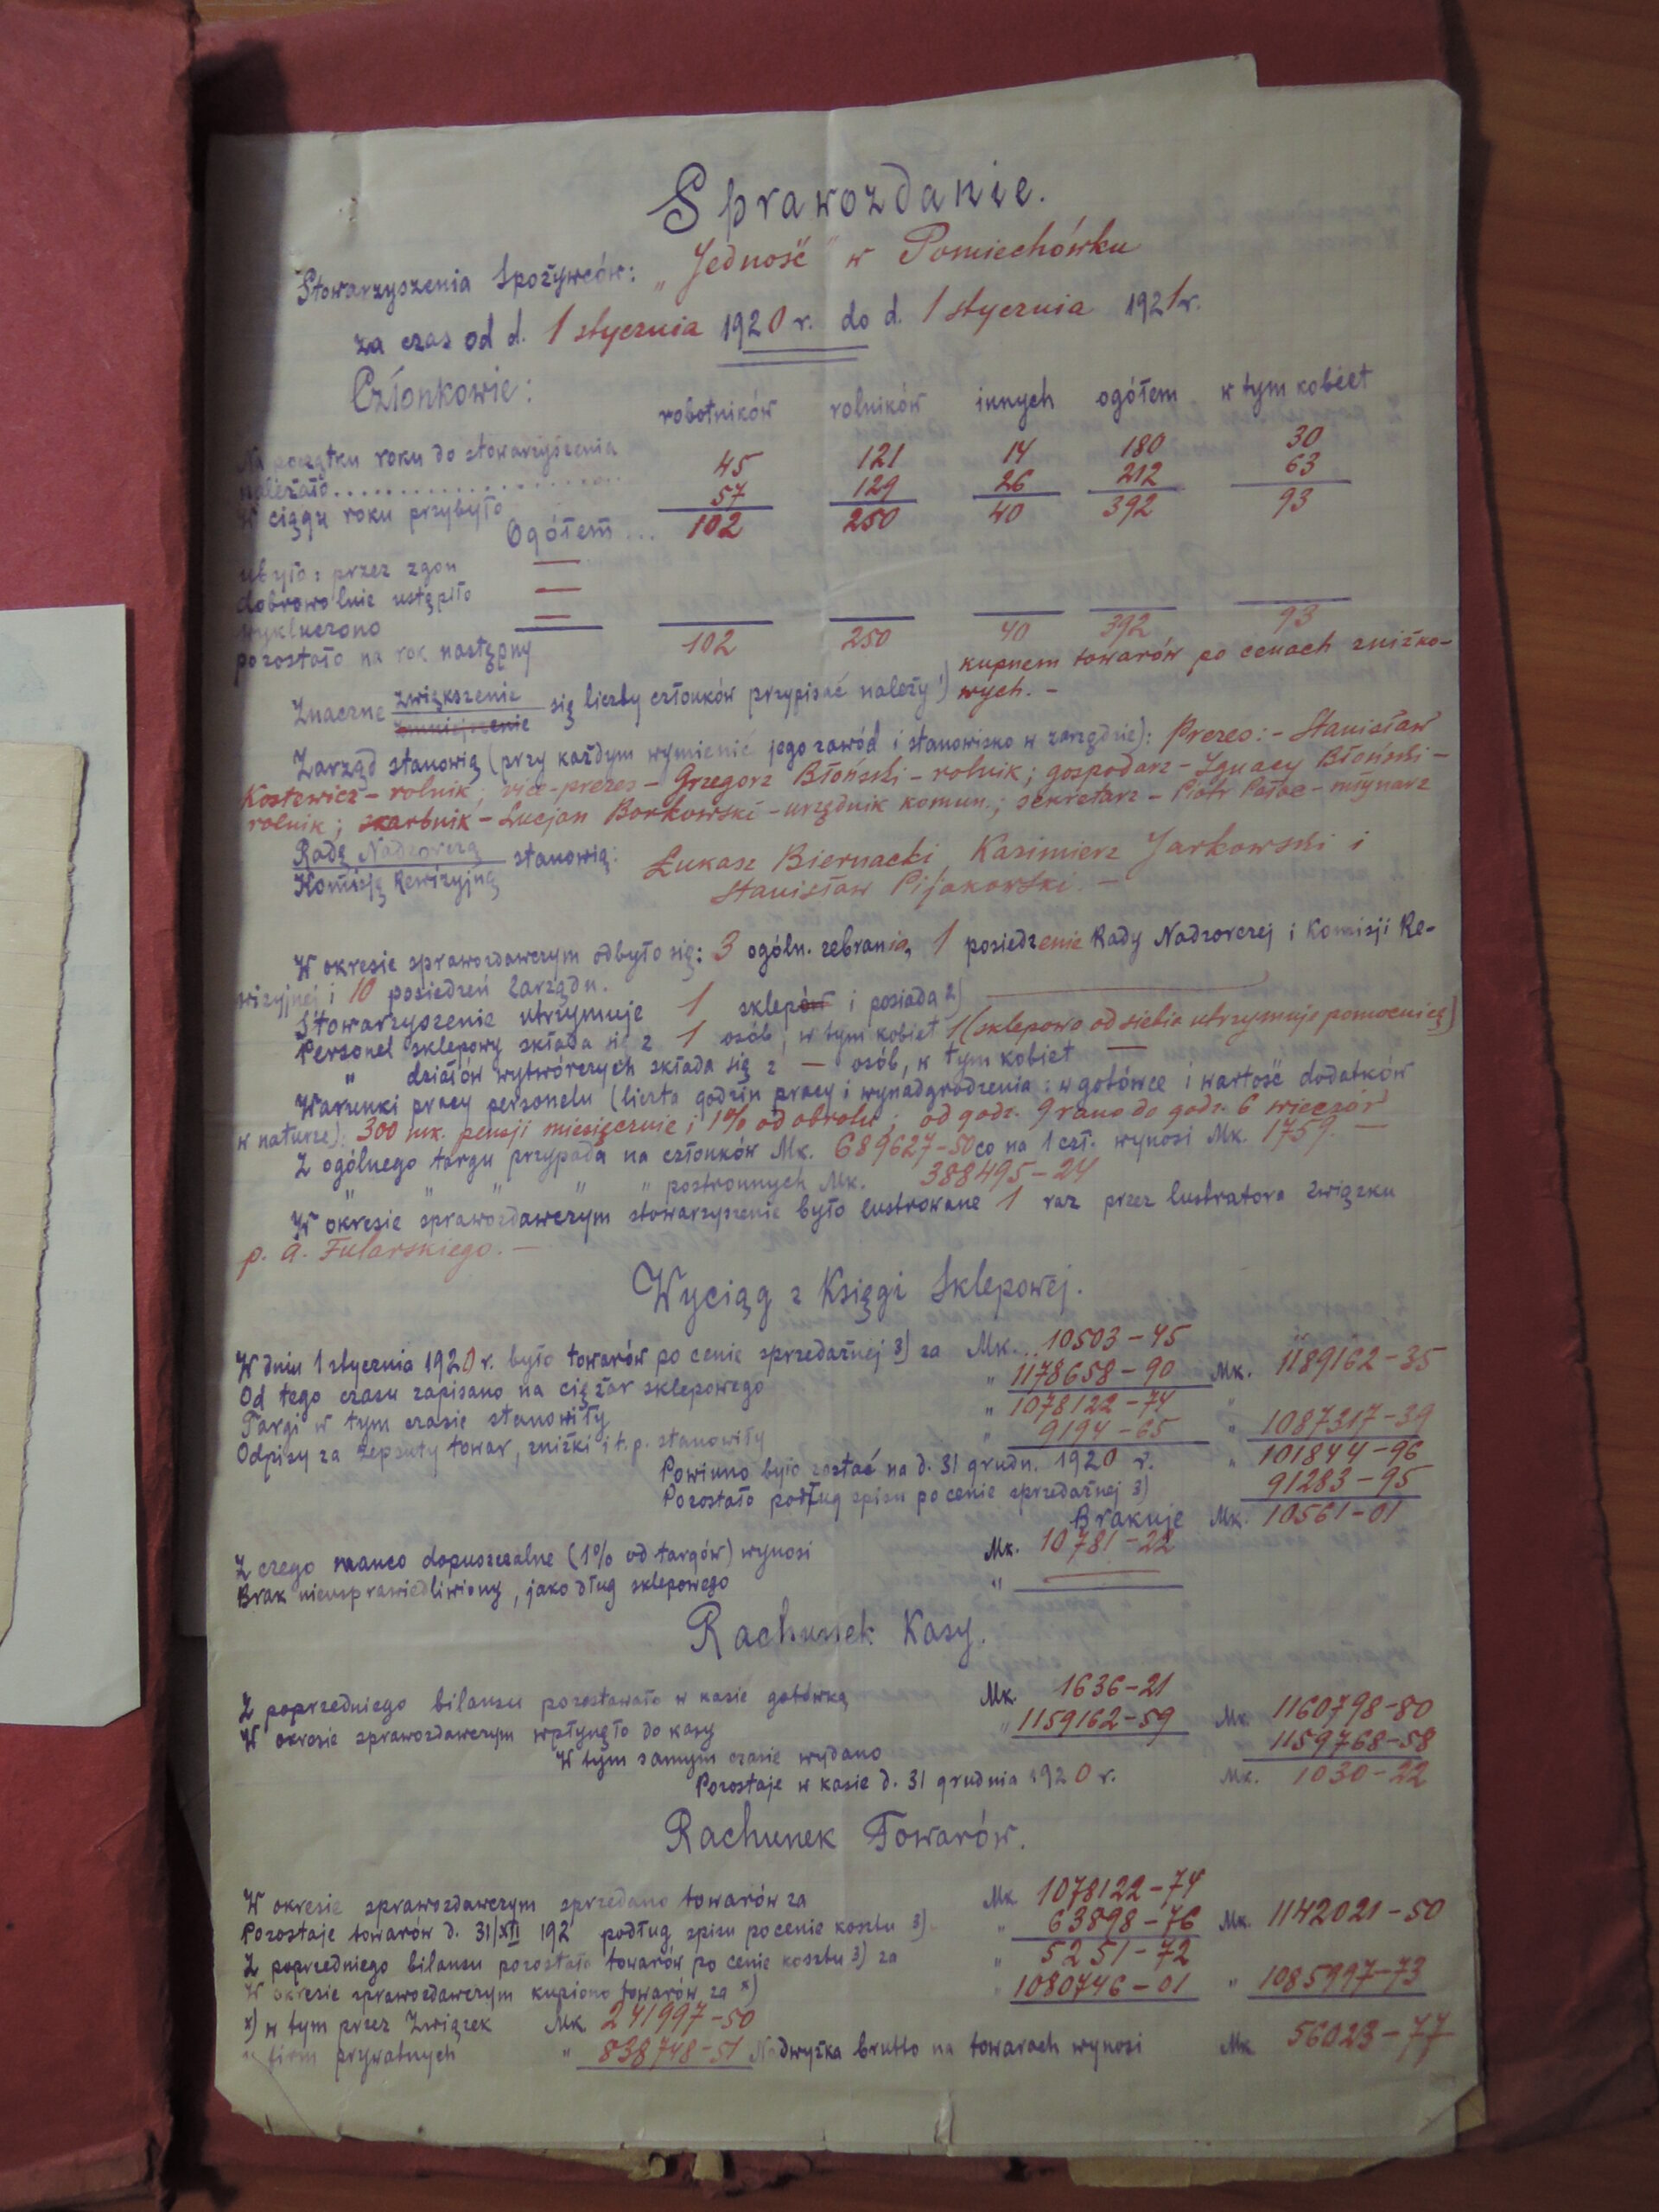 Sprawozdanie.
Stowarzyszenia Spożywców: „Jedność" w Pomiechówku
za czas od d. 1 stycznia 1920 r. do d. 1 stycznia 1921 r.
Członkowie: robotników rolników innych ogółem w tym kobiet
Na początku roku do stowarzyszenia
należało.................... 45 121 14 180 30
W ciągu roku przybyło 57 129 26 212 63
Ogółem ... 102 250 40 392 93
ubyło: przez zgon —
dobrowolnie ustąpiło —
wykluczono —
pozostało na rok następny 102 250 40 392 93
Znaczne zwiększenie
zmniejszenie się liczby członków przypisać należy 1) kupnem towarów po cenach zniżko-
wych. -
Zarząd stanowią (przy każdym wymienić jego zawód i stanowisko w zarządzie): Prezes: - Stanisław
Kostewicz - rolnik; vice-prezes - Grzegorz Błoński - rolnik; gospodarz - Ignacy Błoński -
rolnik; skarbnik - Lucjan Borkowski - urzędnik komun.; sekretarz - Piotr Pałac - młynarz
Radę Nadzorczą
Komisję Rewizyjną stanowią: Łukasz Biernacki, Kazimierz Jarkowski i
Stanisław Pijakowski. -
W okresie sprawozdawczym odbyło się: 3 ogóln. zebrania, 1 posiedzenie Rady Nadzorczej i Komisji Re-
wizyjnej i 10 posiedzeń Zarządu.
Stowarzyszenie utrzymuje 1 sklepów i posiada 2) —
Personel sklepowy składa się z 1 osób, w tym kobiet 1 (sklepowa od siebie utrzymuje pomocnicę)
" działów wytwórczych składa się z — osób, w tym kobiet —
Warunki pracy personelu (liczba godzin pracy i wynadgrodzenia: w gotówce i wartość dodatków
w naturze): 300 mk. pensji miesięcznie i 1% od obrotu; od godz. 9 rano do godz. 6 wieczór
Z ogólnego targu przypada na członków Mk. 689627-50 co na 1 czł. wynosi Mk. 1759. —
" " " " " postronnych Mk. 388495-24
W okresie sprawozdawczym stowarzyszenie było lustrowane 1 raz przez lustratora Związku
p. A. Fularskiego. —
Wyciąg z Księgi Sklepowej.
W dniu 1 stycznia 1920 r. było towarów po cenie sprzedażnej 3) za Mk... 10503-45
Od tego czasu zapisano na ciężar sklepowego " 1178658-90 Mk. 1189162-35
Targi w tym czasie stanowiły " 1078122-74 "
Odpisy za zepsuty towar, zniżki i t.p. stanowiły " 9194-65 " 1087317-39
Powinno było zostać na d. 31 grudn. 1920 r. " 101844-96
Pozostało podług spisu po cenie sprzedażnej 3) 91283-95
Brakuje Mk. 10561-01
Z czego manco dopuszczalne (1% od targów) wynosi Mk. 10781-22
Brak nieusprawiedliwiony, jako dług sklepowego " —
Rachunek Kasy.
Z poprzedniego bilansu pozostawało w kasie gotówką Mk. 1636-21
W okresie sprawozdawczym wpłynęło do kasy " 1159162-59 Mk. 1160798-80
W tym samym czasie wydano 1159768-58
Pozostaje w kasie d. 31 grudnia 1920 r. Mk. 1030-22
Rachunek Towarów.
W okresie sprawozdawczym sprzedano towarów za Mk 1078122-74
Pozostaje towarów d. 31/XII 192 podług spisu po cenie kosztu 3) " 63898-76 Mk. 1142021-50
Z poprzedniego bilansu pozostało towarów po cenie kosztu 3) za " 5251-72
W okresie sprawozdawczym kupiono towarów za x) " 1080746-01 " 1085997-73
x) w tym przez Związek Mk 241997-50
" firm prywatnych " 838748-51 Nadwyżka brutto na towarach wynosi Mk 56023-77